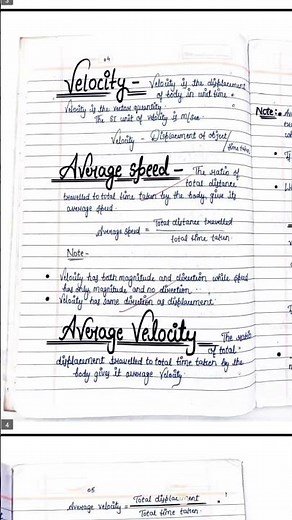 04
Velocity - Velocity is the displacement
of body in unit time.
Velocity is the vector quantity.
The SI unit of velocity is m/sec
Velocity - Displacement of object/
time taken
Average speed - The ratio of
total distance
travelled to total time taken by the body, give its
average speed.
Average speed = Total distance travelled
total time taken
Note -
• Velocity has both magnitude and direction while speed
has only magnitude and no direction.
• Velocity has same direction as displacement.
Average Velocity - The ratio
of total
displacement travelled to total time taken by the
body give it average velocity.
4
05
Average velocity = Total displacement
Total time taken
Note:-